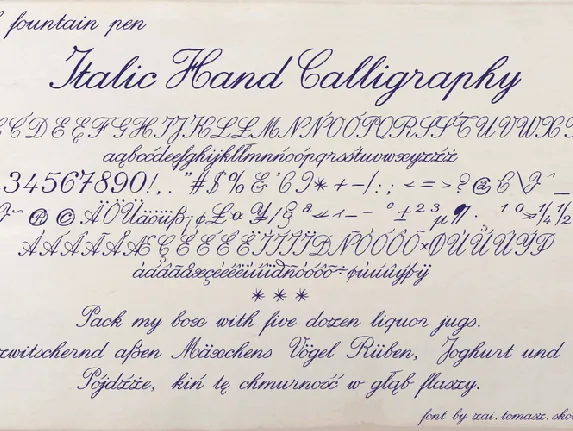 fountain pen
Italic Hand Calligraphy
ĆDEĘFGHIJKLŁMNŃOÓPQRSŚTUVWX
aąbcćdeęfghijklłmnńoópqrsśtuvwxyzźż
34567890!,."#$%&'()*+-/:;<=>?@[\]^_
ÄÖÜäöüß
ÀÁÂÃÄÅÆÇÈÉÊËÌÍÎÏÐÑÒÓÔÕÖ×ØÙÚÛÜÝÞ
àáâãäåæçèéêëìíîïðñòóôõö÷øùúûüýþÿ
***
Pack my box with five dozen liquor jugs.
zwitschernd aßen Mäxchens Vögel Rüben, Joghurt und
Pójdźże, kiń tę chmurność w głąb flaszy.
font by zai. tomasz. sko